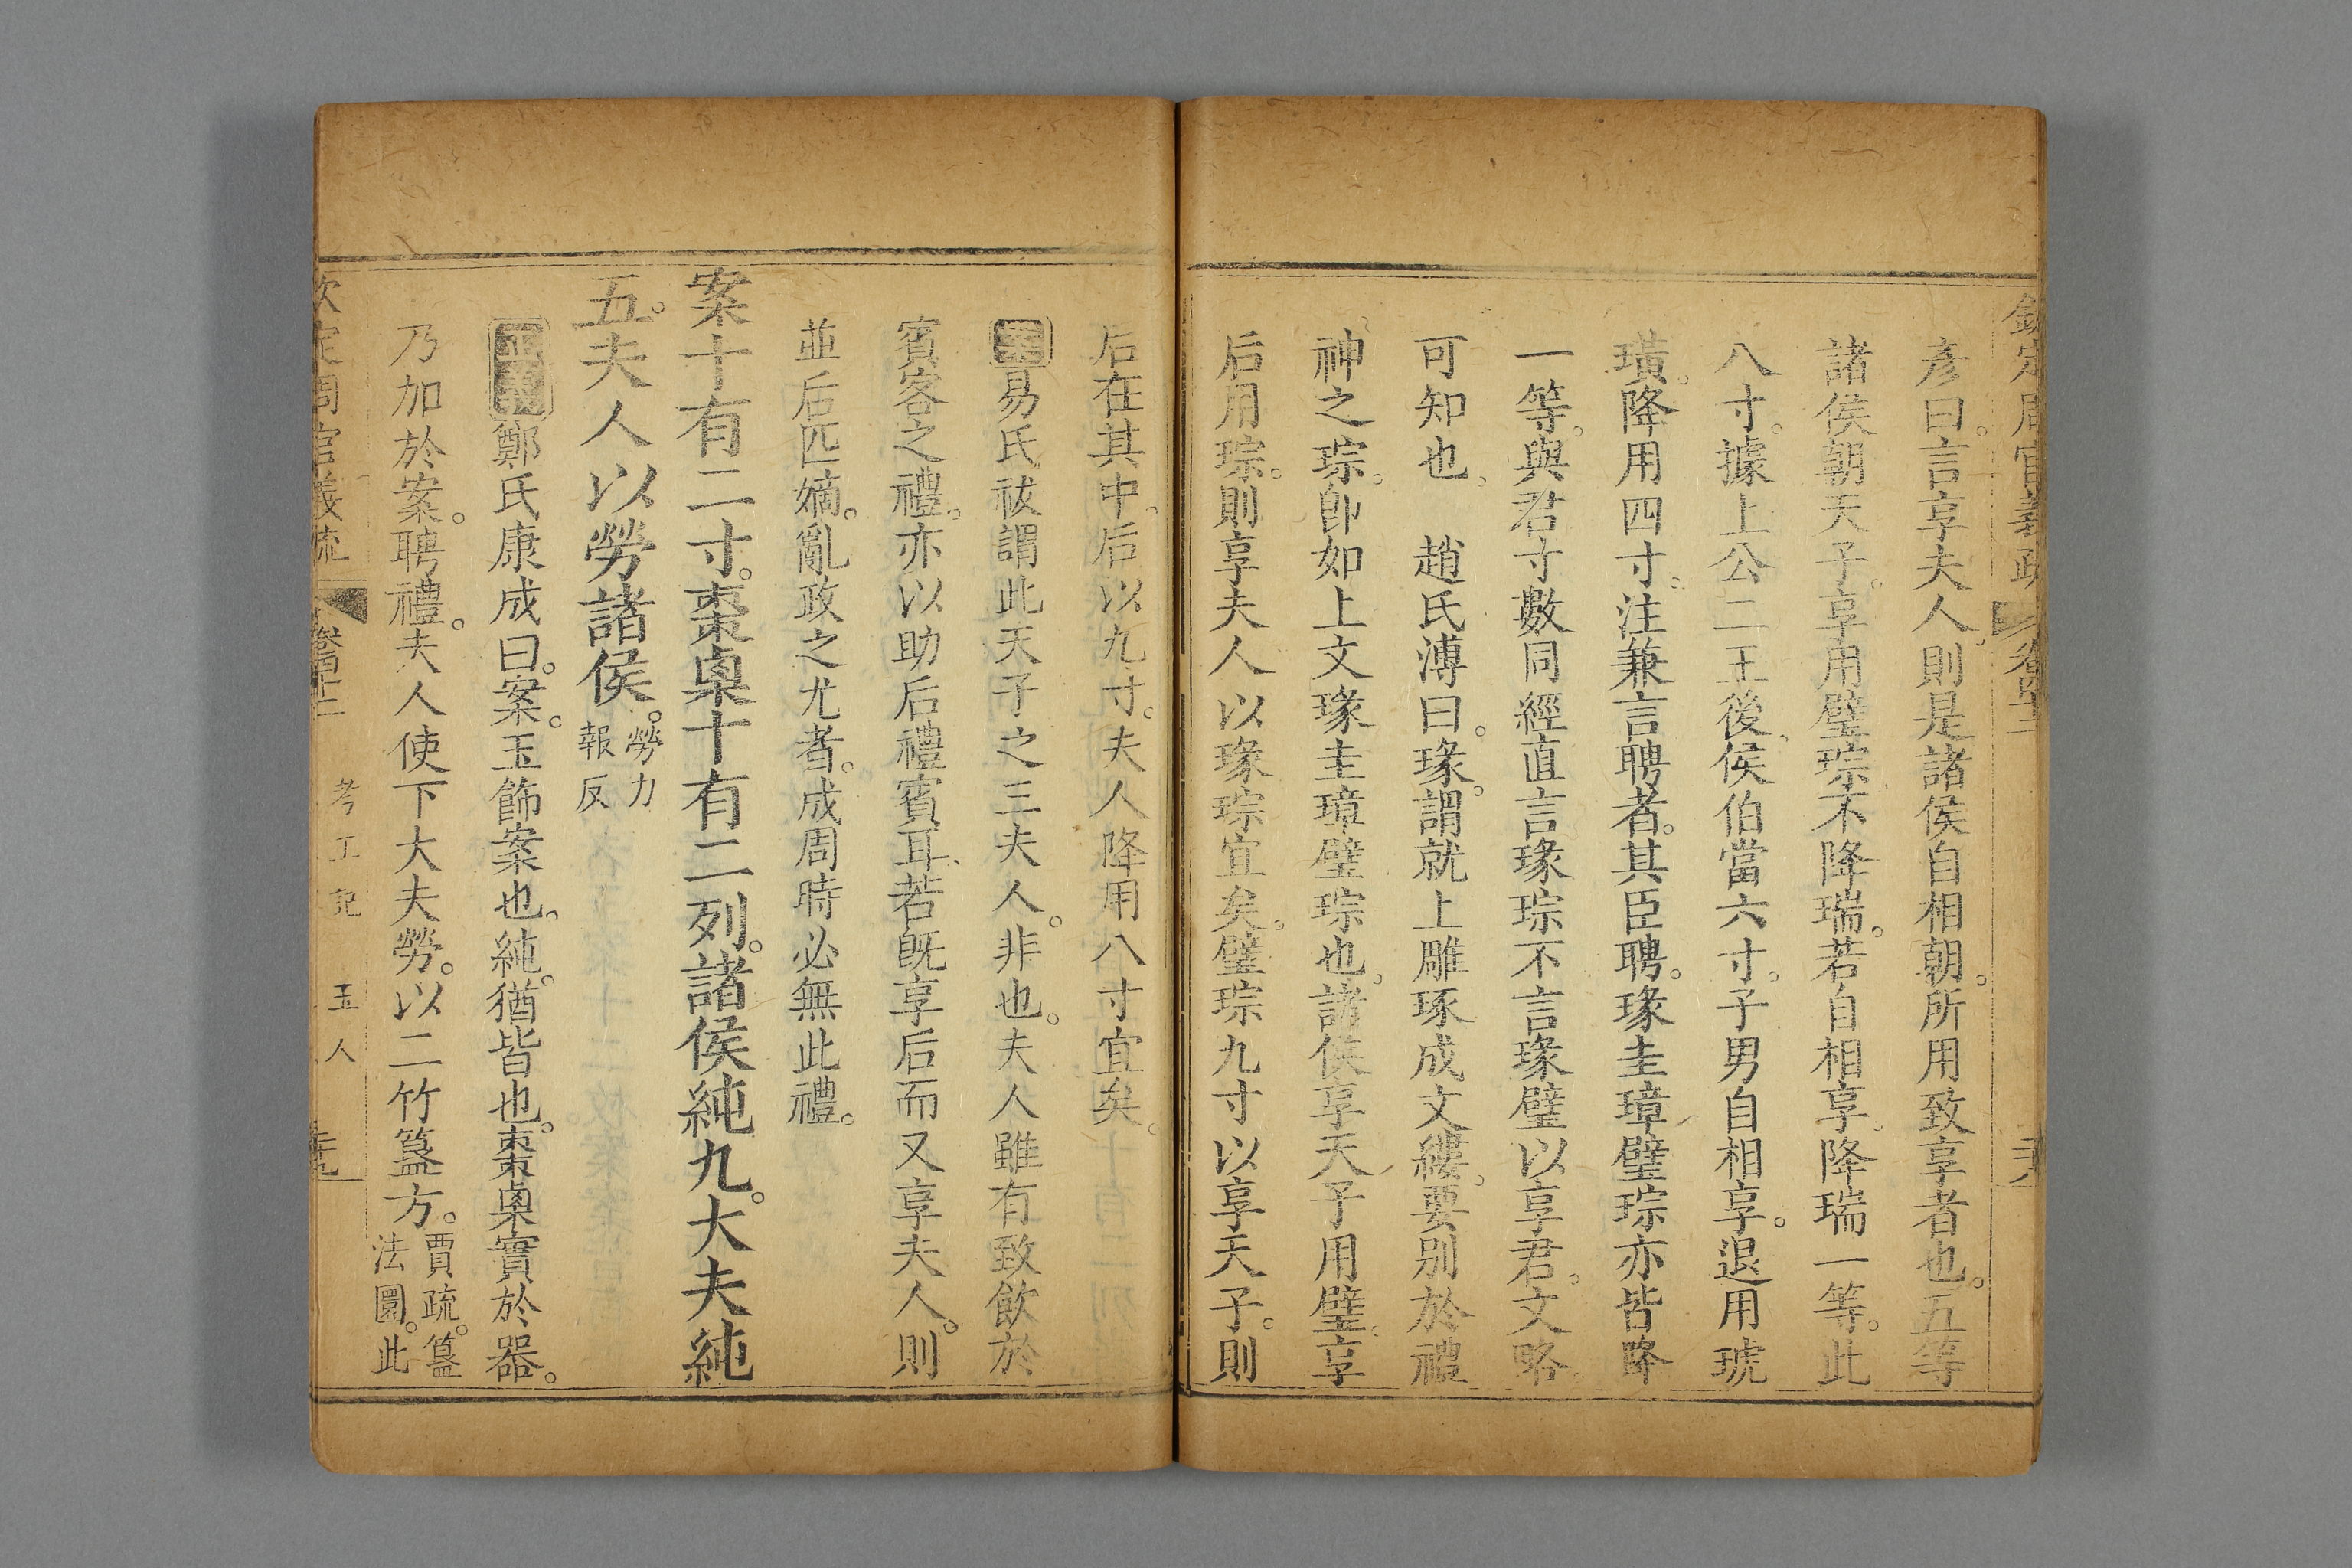 彥曰。言享夫人。則是諸侯自相朝。所用致享者也。五等
諸侯朝天子。享用璧琮。不降瑞。若自相享。降瑞一等。此
八寸。據上公二王後。侯伯當六寸。子男自相享。退用琥
璜。降用四寸。注兼言聘者。其臣聘。瑑圭璋璧琮亦皆降
一等。與君寸數同。經直言瑑琮。不言瑑璧以享君。文略
可知也。 趙氏溥曰。瑑。謂就上雕琢成文縷。要别於禮
神之琮。卽如上文瑑圭璋璧琮也。諸侯享天子用璧。享
后用琮。則享夫人以瑑琮宜矣。璧琮九寸以享天子。則
后在其中。后以九寸。夫人降用八寸宜矣。
易氏祓謂此天子之三夫人。非也。夫人雖有致飲於
賓客之禮。亦以助后禮賓耳。若旣享后而又享夫人。則
並后匹嫡。亂政之尤者。成周時必無此禮。
案十有二寸。棗㮚十有二列。諸侯純九。大夫純
五。夫人以勞諸侯。勞力
報反
正義鄭氏康成曰。案。玉飾案也。純。猶皆也。棗㮚實於器。
乃加於案。聘禮。夫人使下大夫勞。以二竹簋方。賈疏。簋
法圓。此
欽定周官義疏 卷四十二 考工記 玉人 三十九